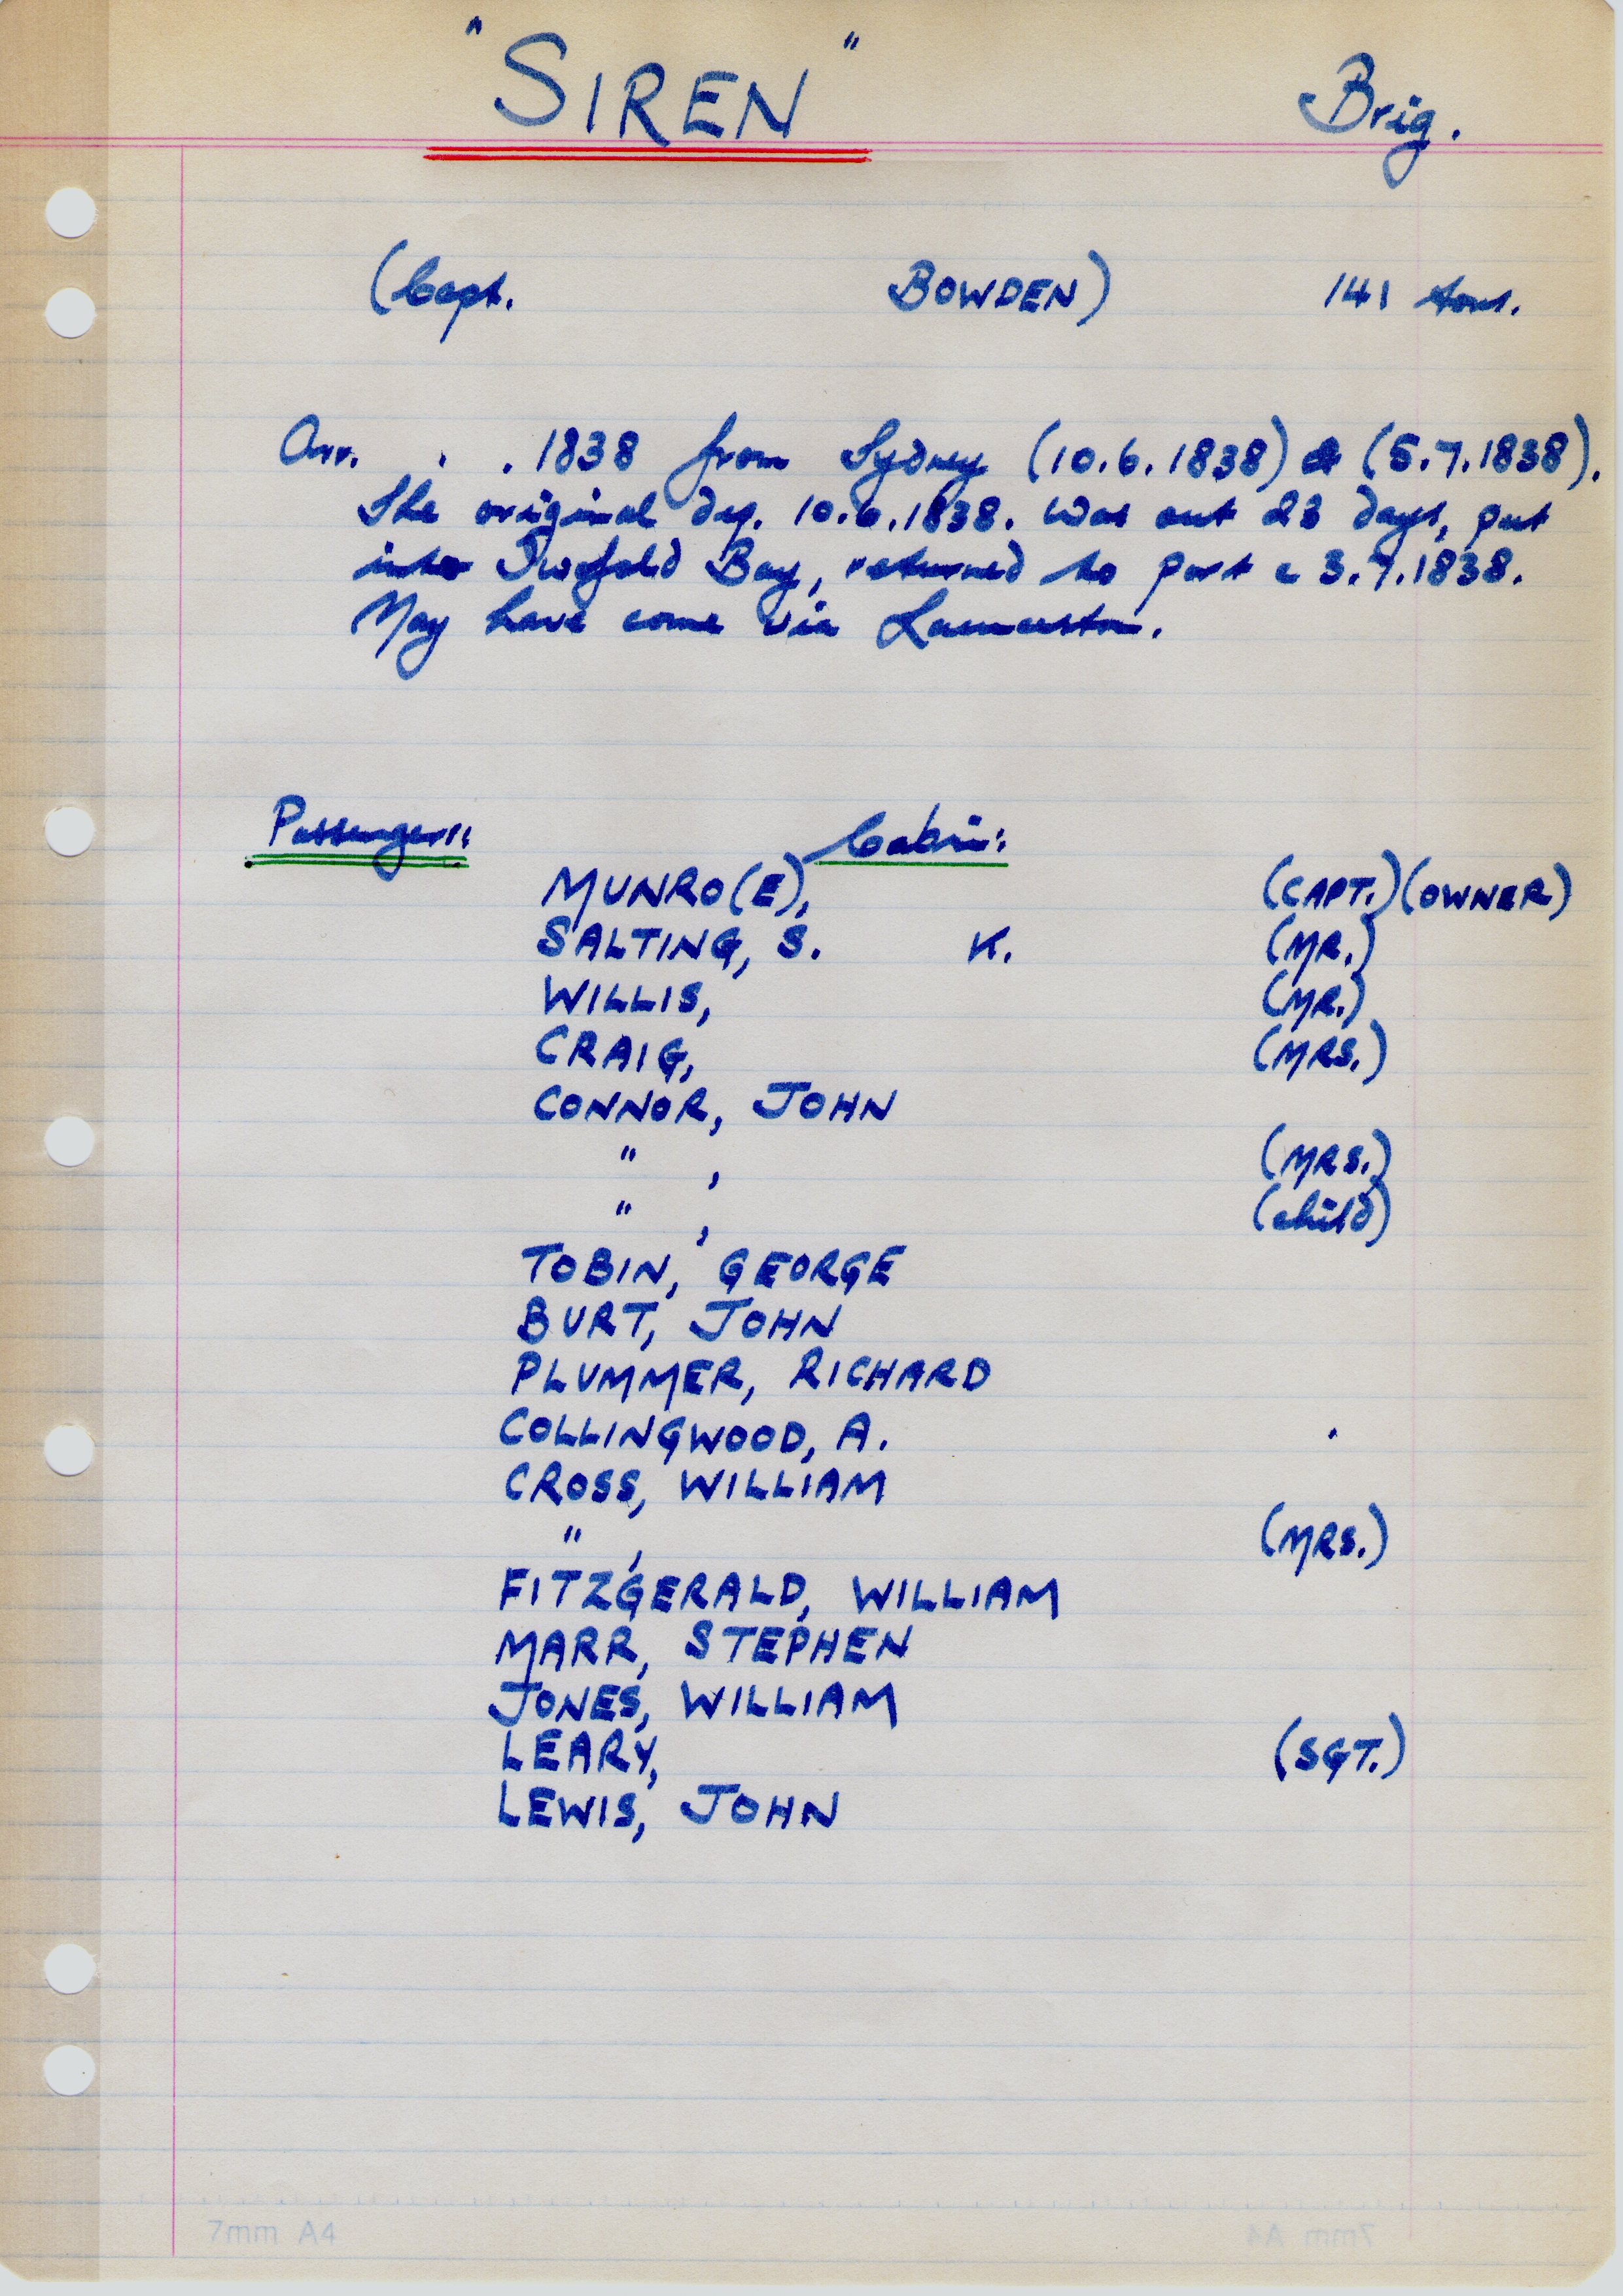 "SIREN" Brig.
(Capt. BOWDEN) 141 tons.
Arr. . . 1838 from Sydney (10.6.1838) & (5.7.1838).
The original dep. 10.6.1838. Was out 23 days, put
into Twofold Bay, returned to port c 3.7.1838.
May have come via Launceston.
Passengers: Cabin:
MUNRO(E), (CAPT.) (OWNER)
SALTING, S. K. (MR.)
WILLIS, (MR.)
CRAIG, (MRS.)
CONNOR, JOHN
" , (MRS.)
" , (child)
TOBIN, GEORGE
BURT, JOHN
PLUMMER, RICHARD
COLLINGWOOD, A.
CROSS, WILLIAM
" , (MRS.)
FITZGERALD, WILLIAM
MARR, STEPHEN
JONES, WILLIAM
LEARY, (SGT.)
LEWIS, JOHN
7mm A4 7mm A4